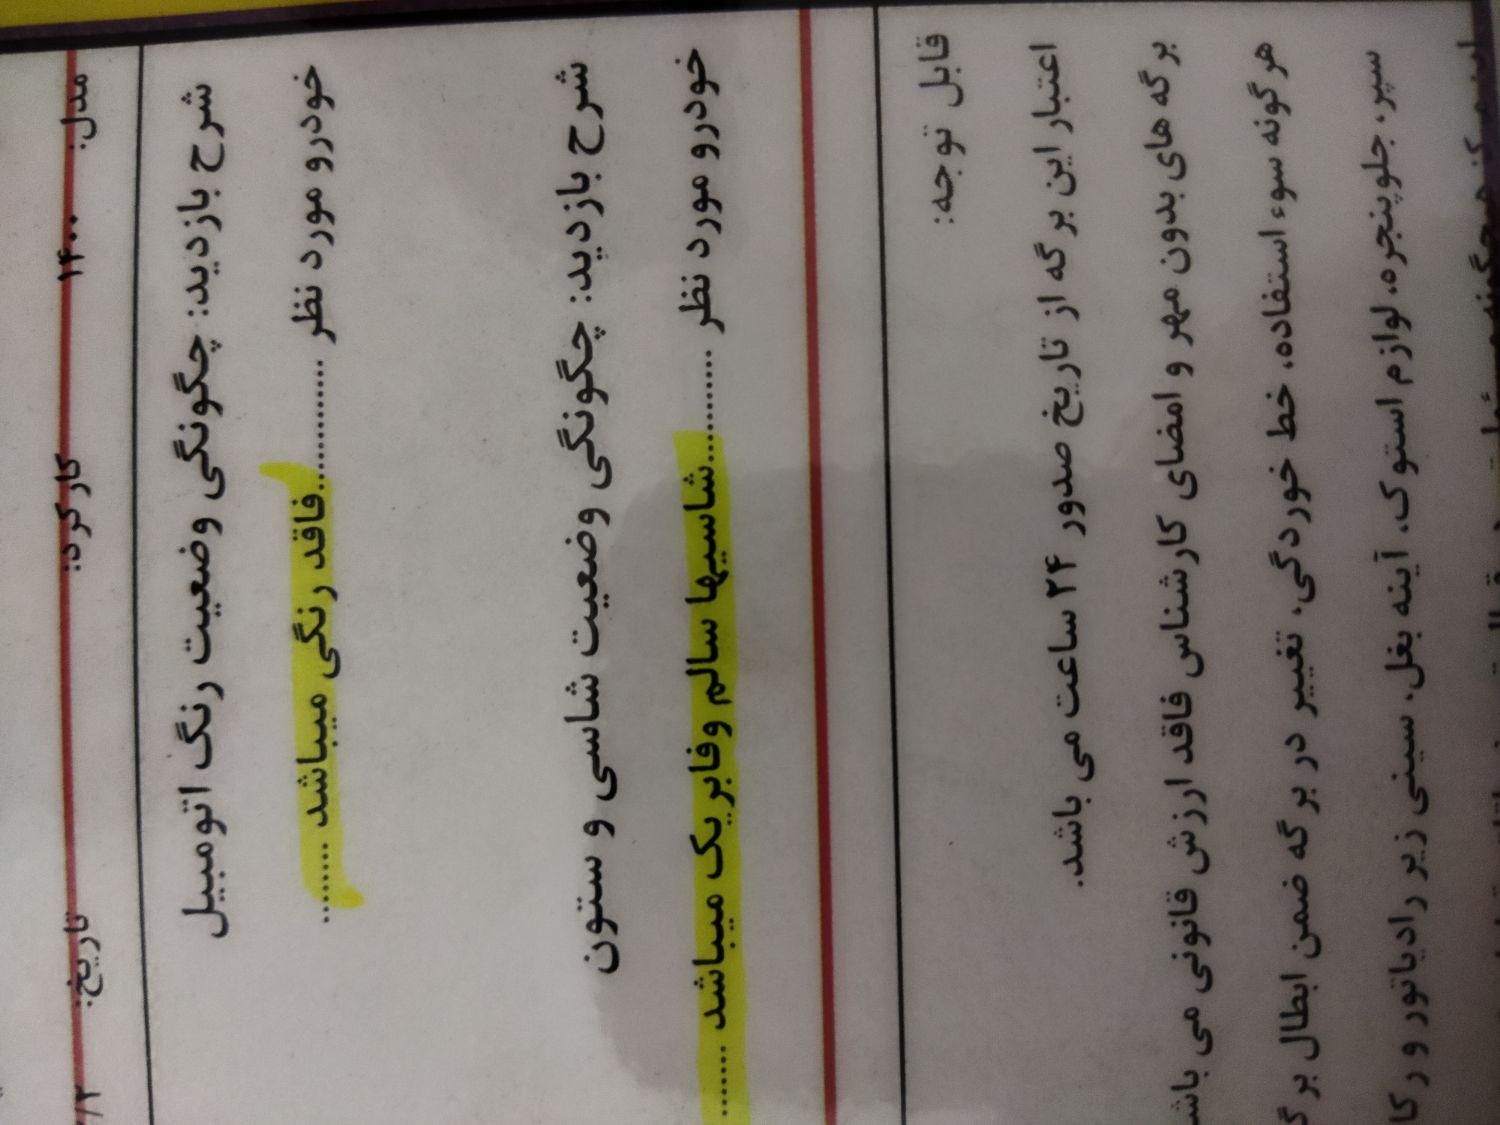 مدل: ۱۴۰۰ کارکرد: تاریخ: /۲
شرح بازدید: چگونگی وضعیت رنگ اتومبیل
خودرو مورد نظر ............فاقد رنگی میباشد ........
شرح بازدید: چگونگی وضعیت شاسی و ستون
خودرو مورد نظر ...........شاسیها سالم وفابریک میباشد ........
قابل توجه:
اعتبار این برگه از تاریخ صدور ۲۴ ساعت می باشد.
برگه های بدون مهر و امضای کارشناس فاقد ارزش قانونی می باش
هرگونه سوء استفاده، خط خوردگی، تغییر در برگه ضمن ابطال برگ
سپر، جلوپنجره، لوازم استوک، آینه بغل، سینی زیر رادیاتور و رکا